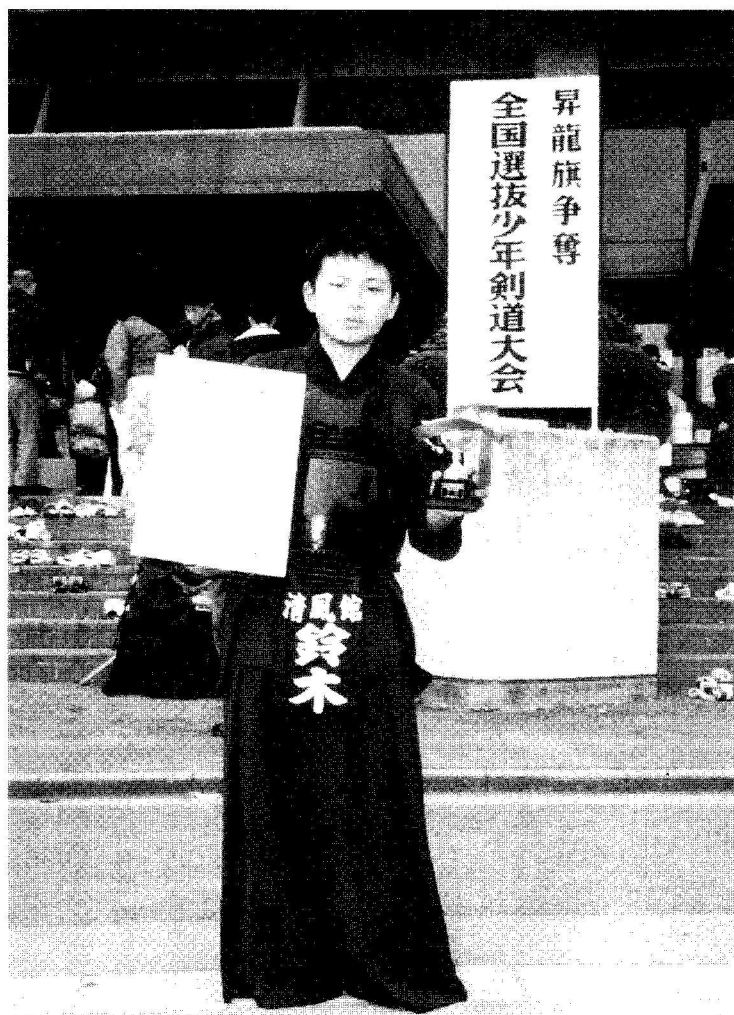 昇龍旗争奪
全国選抜少年剣道大会
清風館
鈴木